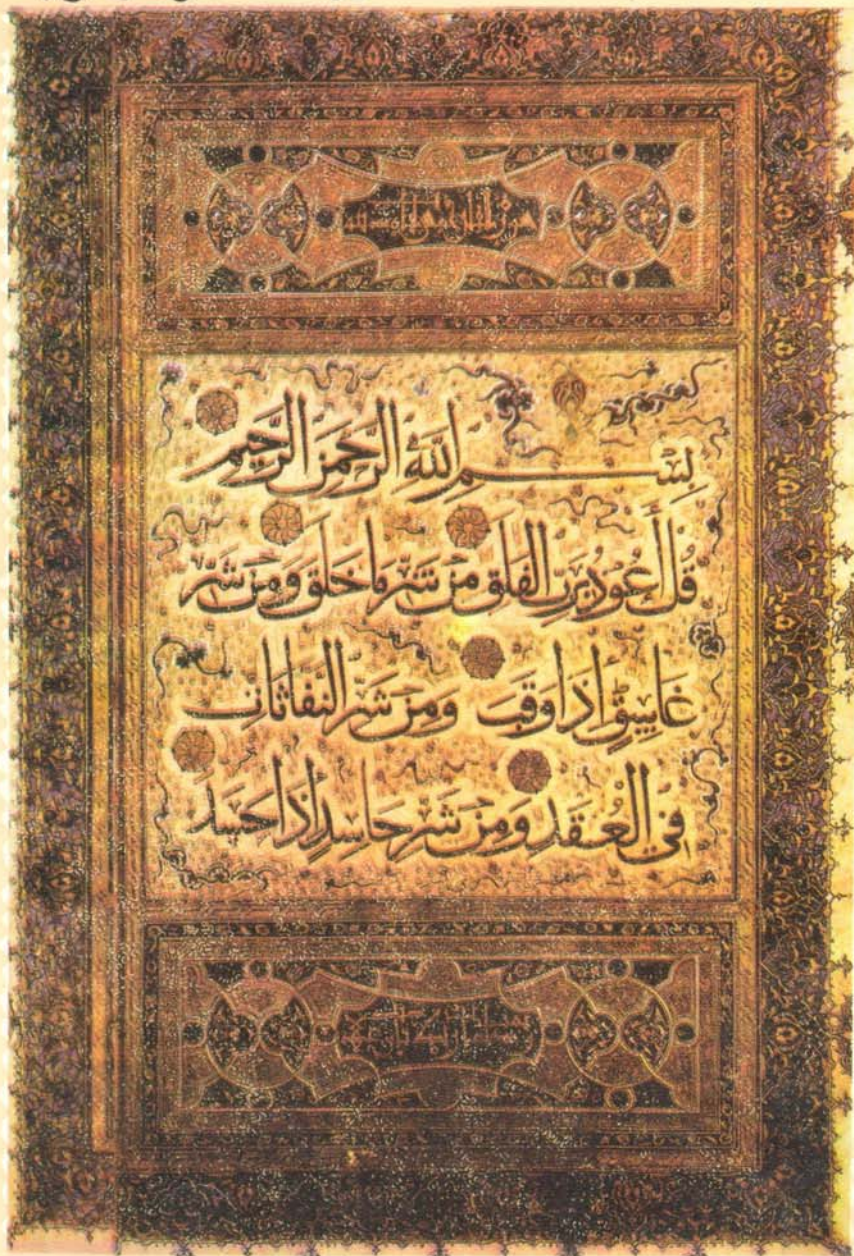 بِسْمِ اللَّهِ الرَّحْمَنِ الرَّحِيمِ
قُلْ أَعُوذُ بِرَبِّ الْفَلَقِ مِنْ شَرِّ مَا خَلَقَ وَمِنْ شَرِّ
غَاسِقٍ إِذَا وَقَبَ وَمِنْ شَرِّ النَّفَّاثَاتِ
فِي الْعُقَدِ وَمِنْ شَرِّ حَاسِدٍ إِذَا حَسَدَ